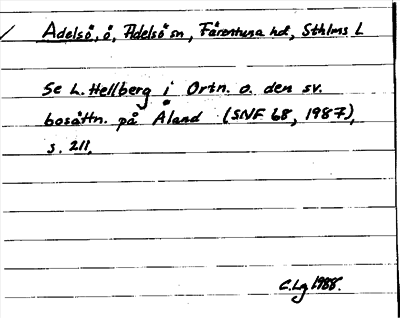 / Adelsö, ö, Adelsö sn, Färentuna hd, Sthlms L
Se L. Hellberg i Ortn. o. den sv.
bosättn. på Åland (SNF 68, 1987),
s. 211.
C.Lg 1988.